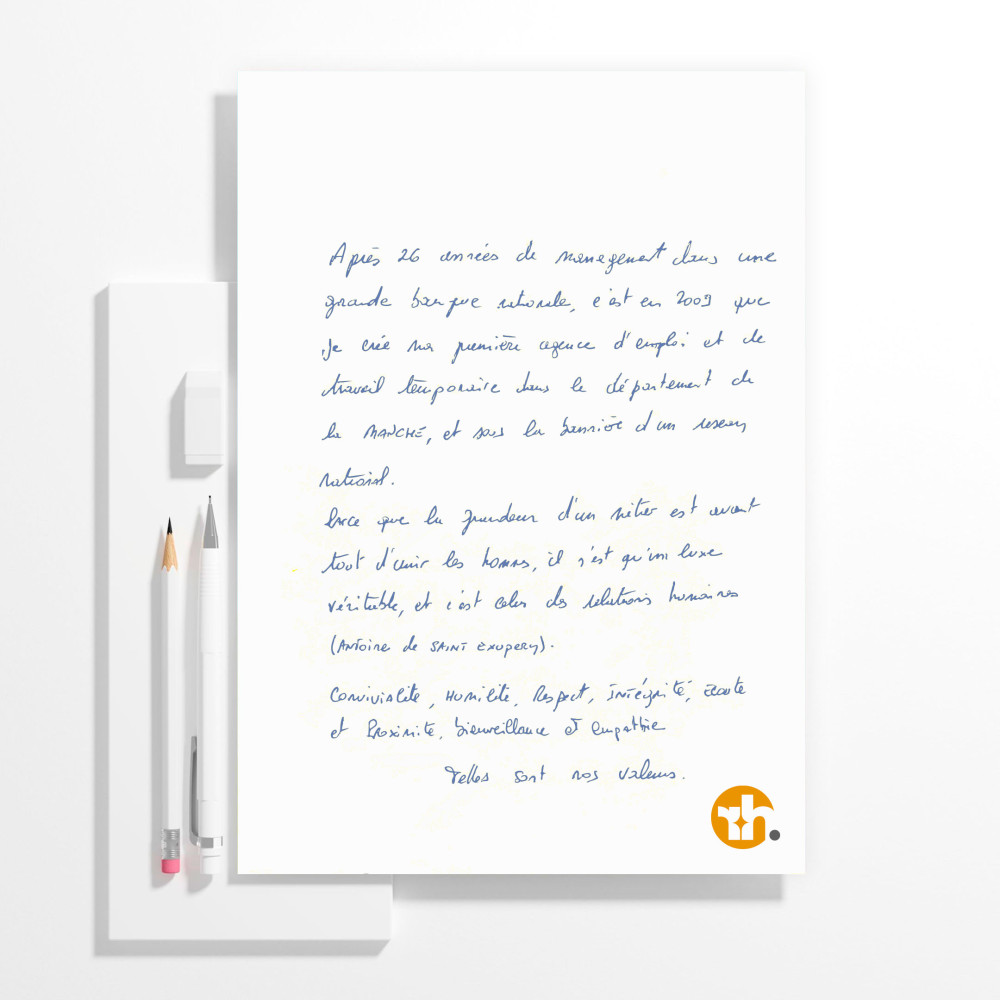 Après 26 années de management dans une
grande banque nationale, c'est en 2009 que
je crée ma première agence d'emploi et de
travail temporaire dans le département de
la MANCHE, et sous la bannière d'un réseau
national.
Parce que la grandeur d'un métier est avant
tout d'unir les hommes, il n'est qu'un luxe
véritable, et c'est celui des relations humaines
(Antoine de SAINT EXUPERY).
Convivialité, Humilité, Respect, Intégrité, Ecoute
et Proximité, bienveillance et empathie
Telles sont nos valeurs.
rh.